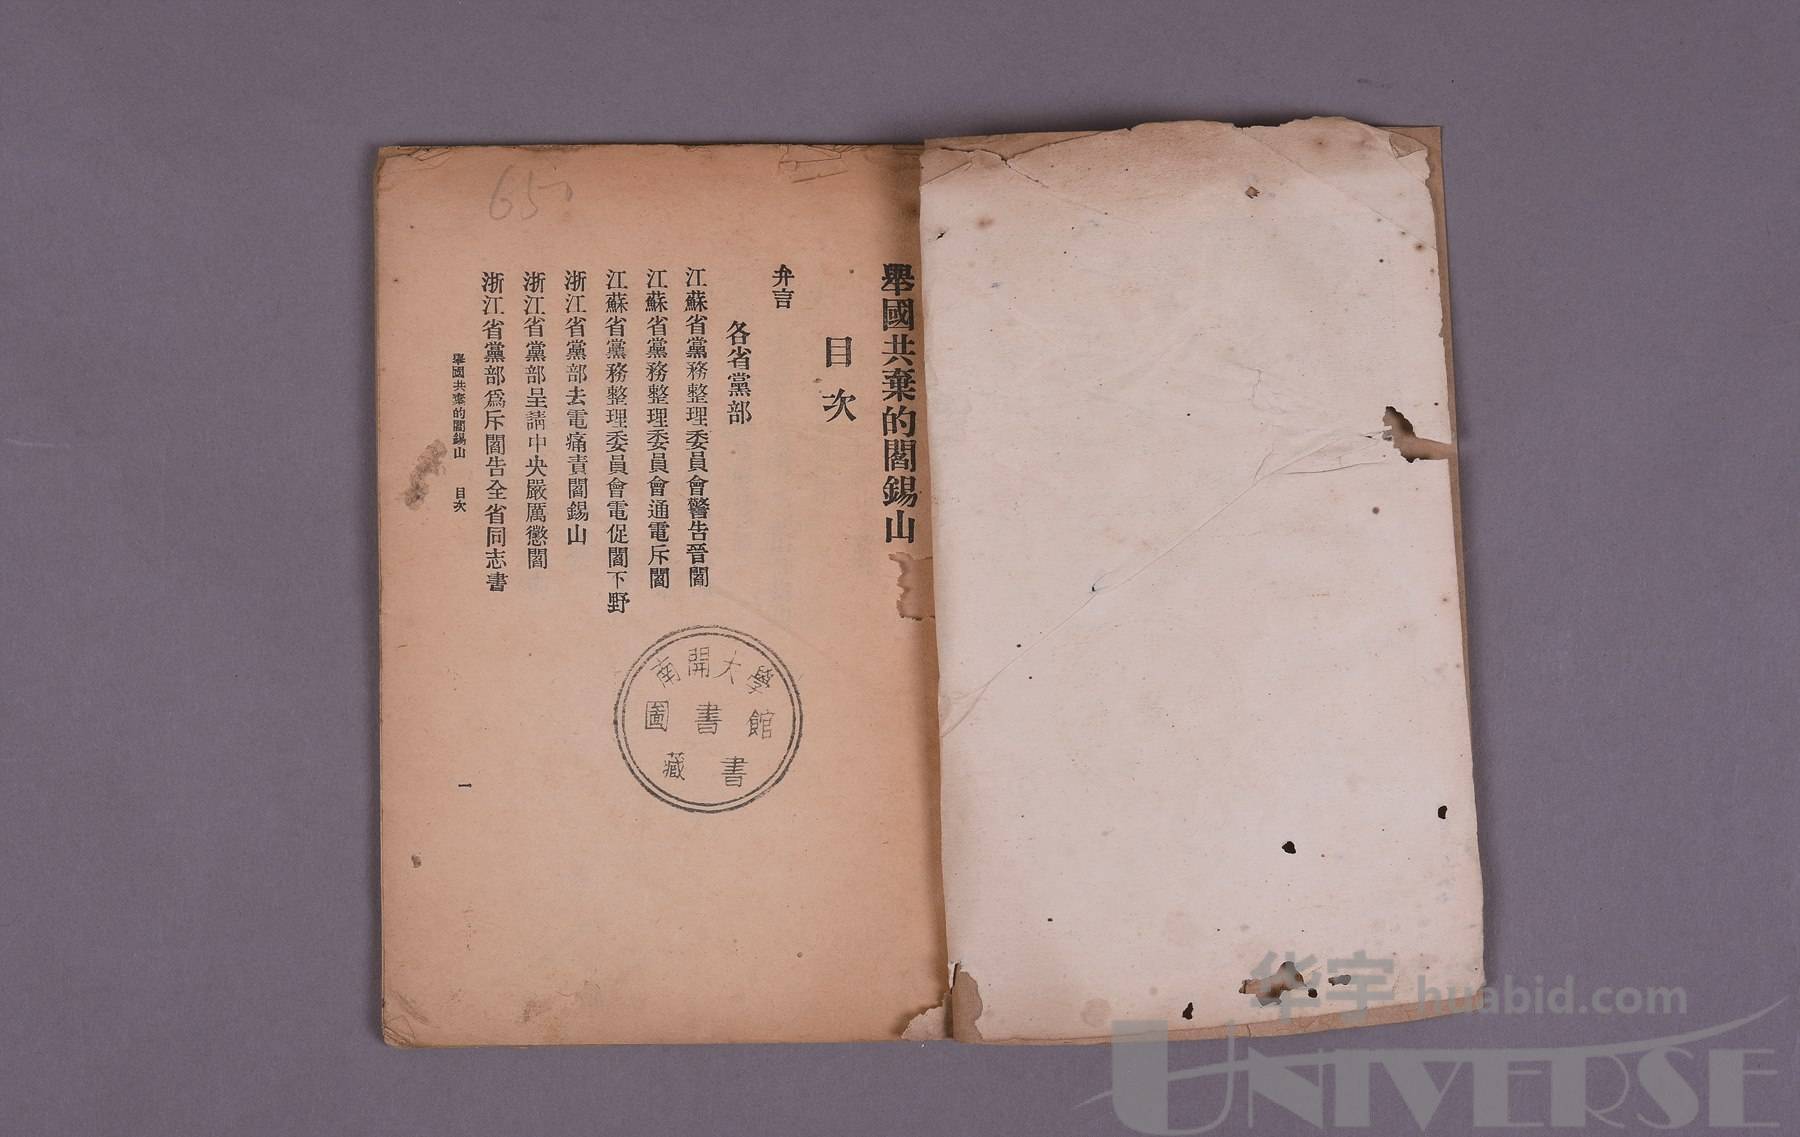 舉國共棄的閻錫山
目次
弁言
各省黨部
江蘇省黨務整理委員會警告晉閻
江蘇省黨務整理委員會通電斥閻
江蘇省黨務整理委員會電促閻下野
浙江省黨部去電痛責閻錫山
浙江省黨部呈請中央嚴厲懲閻
浙江省黨部爲斥閻告全省同志書
舉國共棄的閻錫山 目次
一
650
南開大學
圖書館
藏書
华宇 huabid.com
UNIVERSE